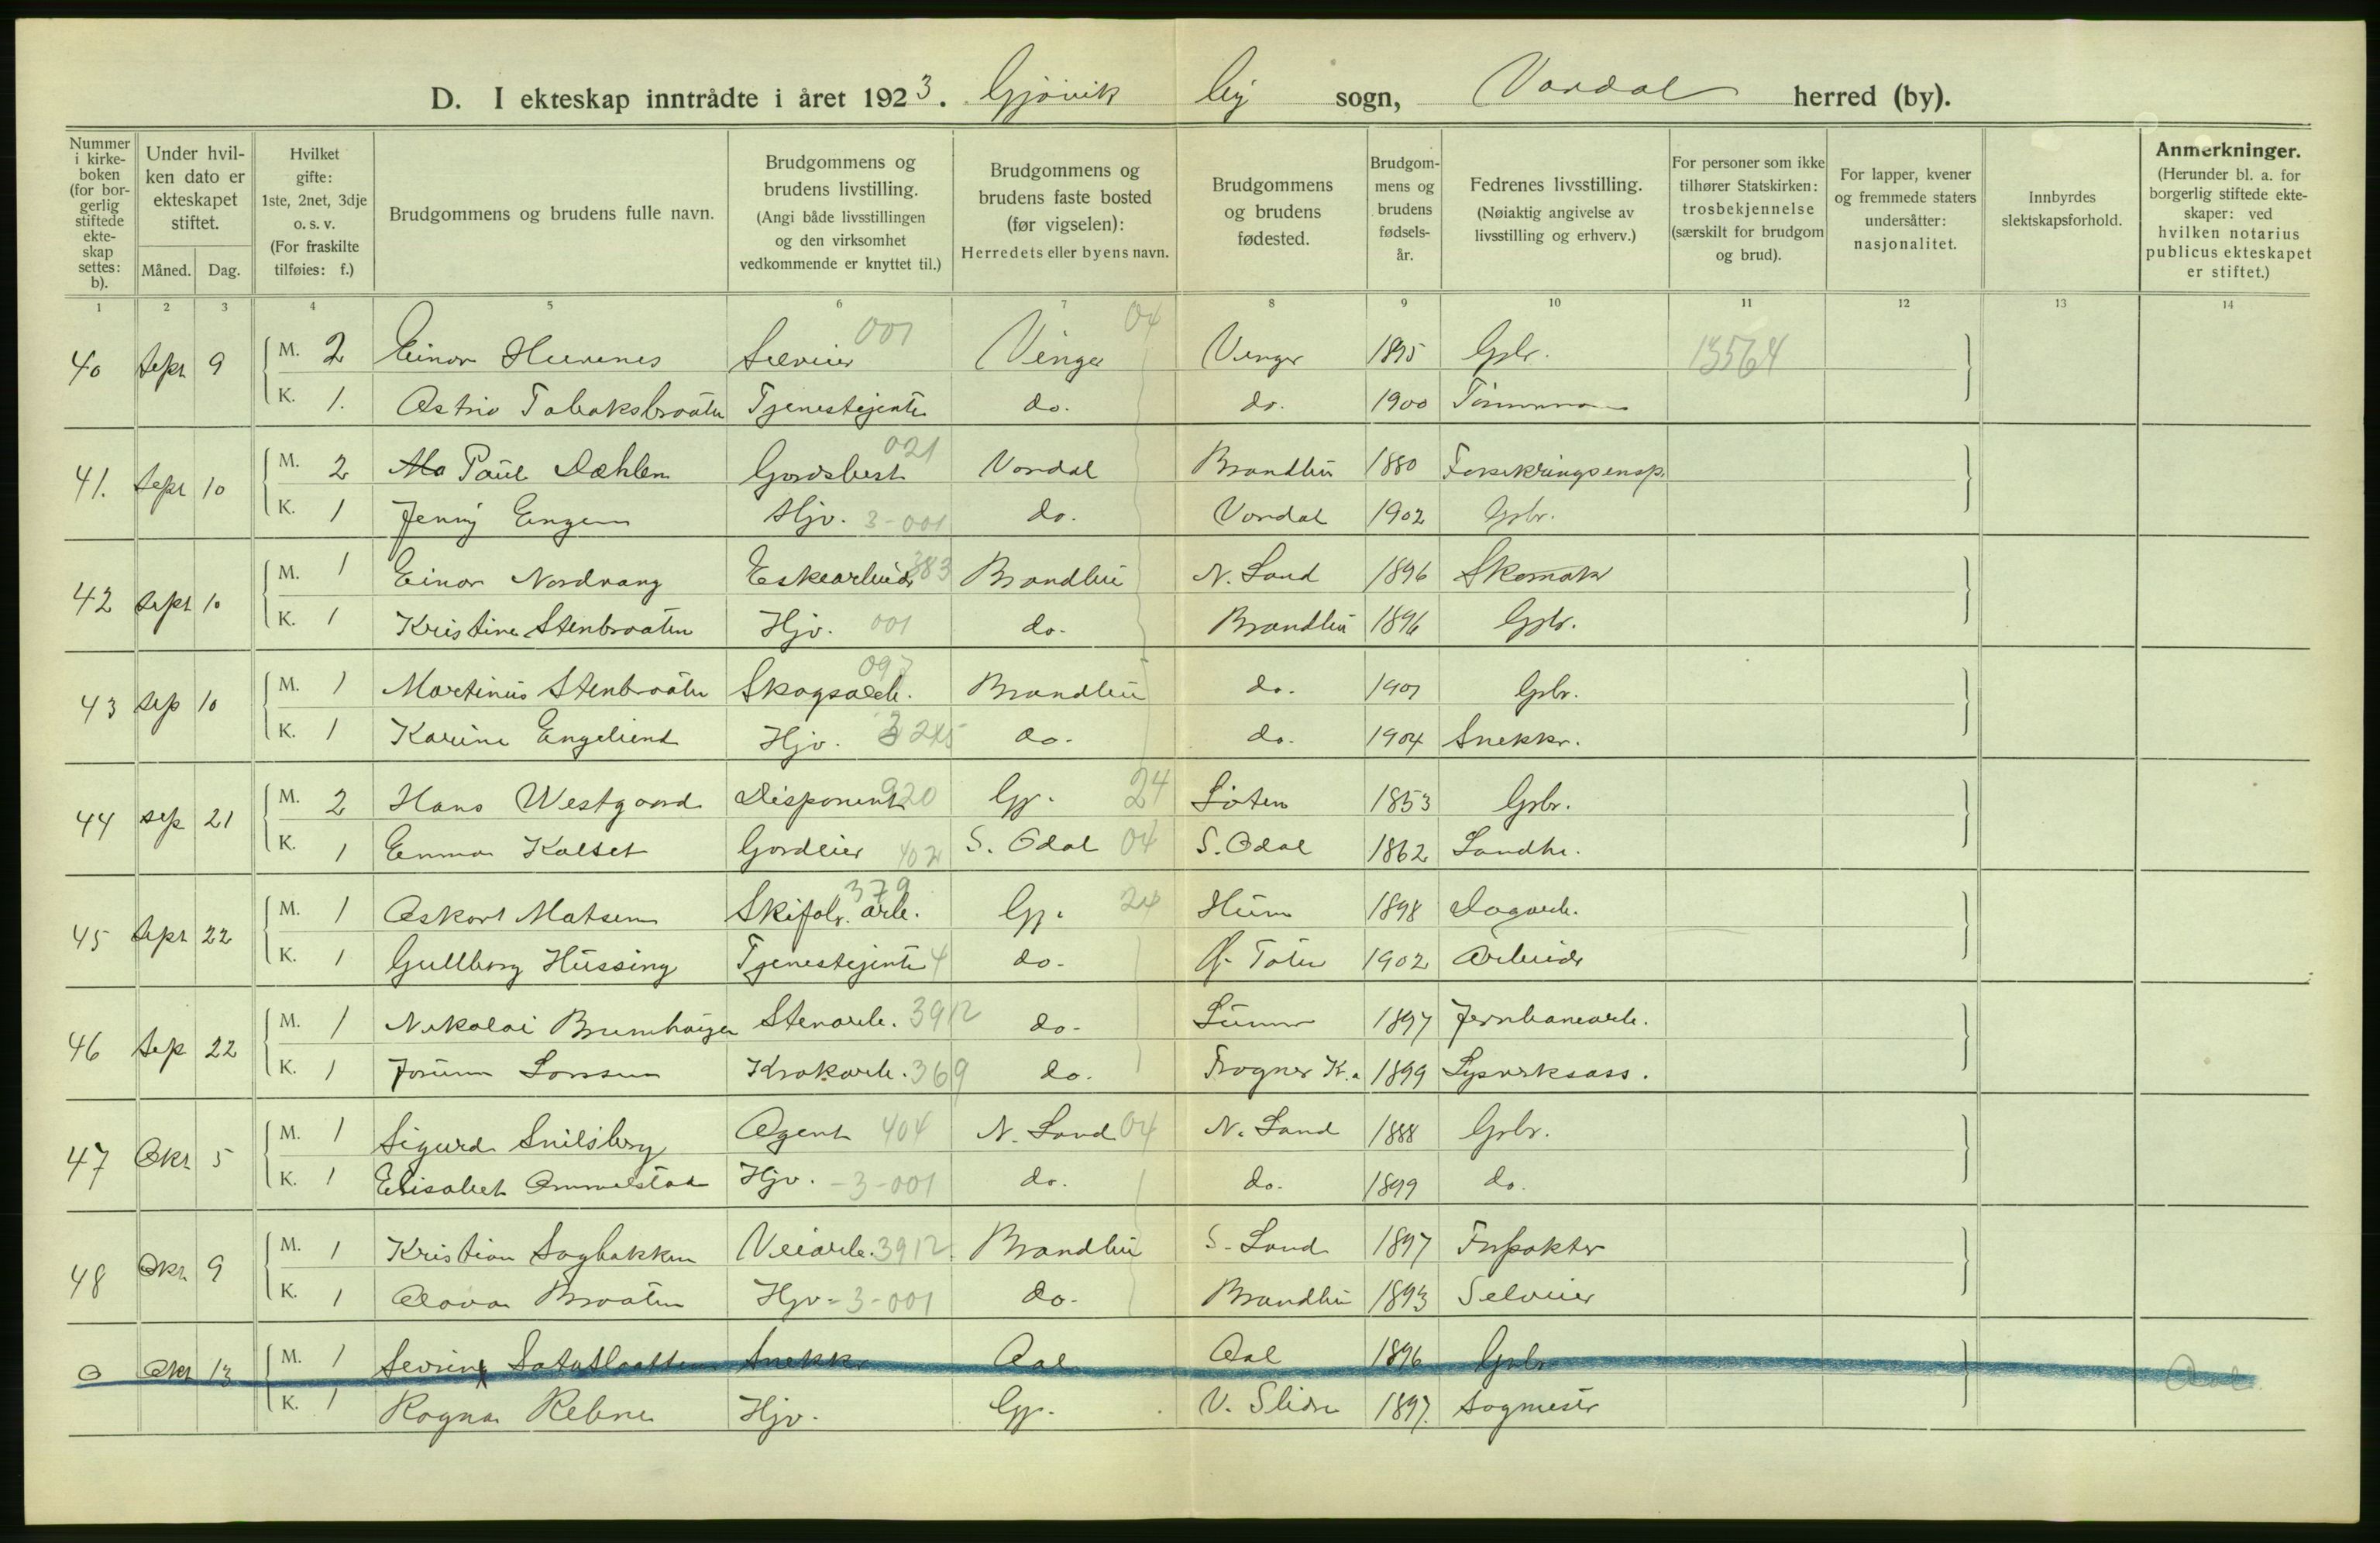 D. I ekteskap inntrådte i året 1923. Gjövik by sogn, Vardal herred (by).
Nummer i kirke-boken (for bor-gerlig stiftede ekte-skap settes: b).
Under hvil-ken dato er ekteskapet stiftet.
Måned. Dag.
Hvilket gifte: 1ste, 2net, 3dje o. s. v. (For fraskilte tilføies: f.)
Brudgommens og brudens fulle navn.
Brudgommens og brudens livstilling. (Angi både livsstillingen og den virksomhet vedkommende er knyttet til.)
Brudgommens og brudens faste bosted (før vigselen): Herredets eller byens navn.
Brudgommens og brudens fødested.
Brudgom-mens og brudens fødsels-år.
Fedrenes livsstilling. (Nøiaktig angivelse av livsstilling og erhverv.)
For personer som ikke tilhører Statskirken: trosbekjennelse (særskilt for brudgom og brud).
For lapper, kvener og fremmede staters undersåtter: nasjonalitet.
Innbyrdes slektskapsforhold.
Anmerkninger. (Herunder bl. a. for borgerlig stiftede ekte-skaper: ved hvilken notarius publicus ekteskapet er stiftet.)
1 2 3 4 5 6 7 8 9 10 11 12 13 14
40 Sept 9 M. 2 Einar Hunnes Selveier 001 Vinger 04 Vinger 1895 Gbr. 13564
K. 1. Astrid Tobaksbraaten Tjenestejente do. do. 1900 Tömmerm
41. Sept 10 M. 2 Paul Dæhlen Gardsbest 021 Vardal Brandbu 1880 Forsikringsinsp.
K. 1 Jenny Engen Hjv. 3-001 do. Vardal 1902 Gbr.
42 Sept 10 M. 1 Einar Nordvang Eskearbeider 383 Brandbu N. Land 1896 Skomaker
K. 1 Kristine Stenbraaten Hjv. 001 do. Brandbu 1896 Gbr.
43 Sep 10 M. 1 Martinus Stenbraaten Skogsarb. 097 Brandbu do. 1901 Gbr.
K. 1 Karine Engelund Hjv. 3 245 do. do. 1904 Snekker.
44 Sep 21 M. 2 Hans Westgaard Disponent 920 Gj. 24 Löten 1853 Gbr.
K. 1 Emma Kolset Gardeier 402 S. Odal 04 S. Odal 1862 Landh.
45 Sept 22 M. 1 Oskar Matsen Skifabr. arb. 379 Gj. 24 Hurum 1898 Dagarb.
K. 1 Gullborg Hussing Tjenestejente 4 do. Ö. Toten 1902 Arbeider
46 Sep 22 M. 1 Nikolai Brunhaugen Stenarb. 3912 do. Lunner 1897 Jernbanearb.
K. 1 Jorunn Larssen Krokarb. 369 do. Frogner K.a 1899 Lysverksass.
47 Okt 5 M. 1 Sigurd Snilsberg Agent 404 N. Land 04 N. Land 1888 Gbr.
K. 1 Elisabet Ommelstad Hjv. -3-001 do. do. 1899 do.
48 Okt 9 M. 1 Kristian Sagbakken Veiarb. 3912 Brandbu S. Land 1897 Forpakter
K. 1 Olava Braaten Hjv. -3-001 do. Brandbu 1893 Selveier
0 Okt 13 M. 1 Snekker Aal Aal 1896 Gbr Aal
K. 1 Ragna Rebne Hjv. Gj. V. Slidre 1897. Sagmester